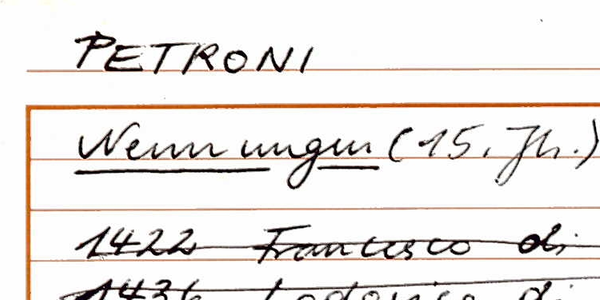 PETRONI
Nennungen (15. Jh.)
1422 Francesco di
1436 Lodovico di